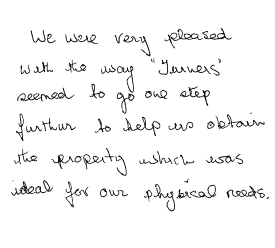 We were very pleased
with the way "Turners"
seemed to go one step
further to help us obtain
the property which was
ideal for our physical needs.